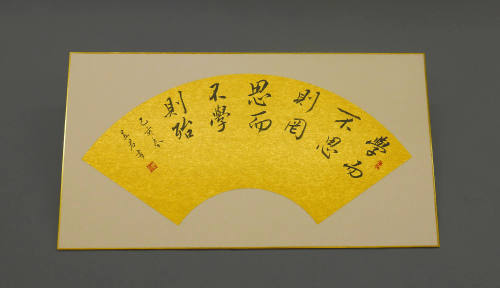 學而
不思
則罔
思而
不學
則殆
己亥春